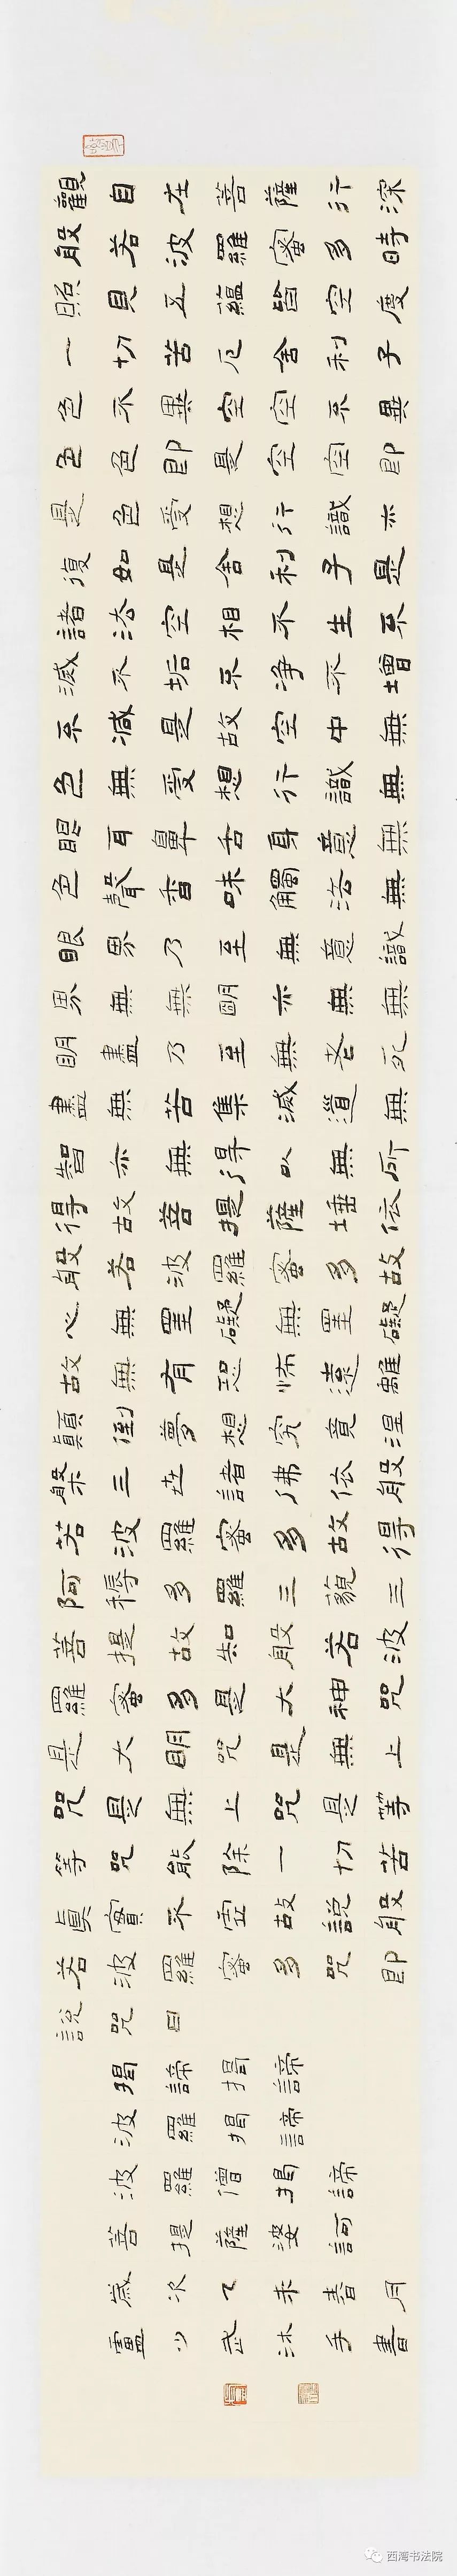 觀自在菩薩行深
般若波羅蜜多時
照見五蘊皆空度
一切苦厄舍利子
色不異空空不異
色色即是空空即
是色受想行識亦
復如是舍利子是
諸法空相不生不
滅不垢不淨不增
不減是故空中無
色無受想行識無
眼耳鼻舌身意無
色聲香味觸法無
眼界乃至無意識
界無無明亦無無
明盡乃至無老死
盡無苦集滅道無
智亦無得以無所
得故菩提薩埵依
般若波羅蜜多故
心無罣礙無罣礙
故無有恐怖遠離
顛倒夢想究竟涅
槃三世諸佛依般
若波羅蜜多故得
阿耨多羅三藐三
菩提故知般若波
羅蜜多是大神咒
是大明咒是無上
咒是無上咒是等
等咒能除一切苦
真實不虛故說般
若波羅蜜多咒即
說咒曰
揭諦揭諦
波羅揭諦
波羅僧揭諦
菩提薩婆訶
歲次乙未春月
盧少武沐手書
西湾书法院